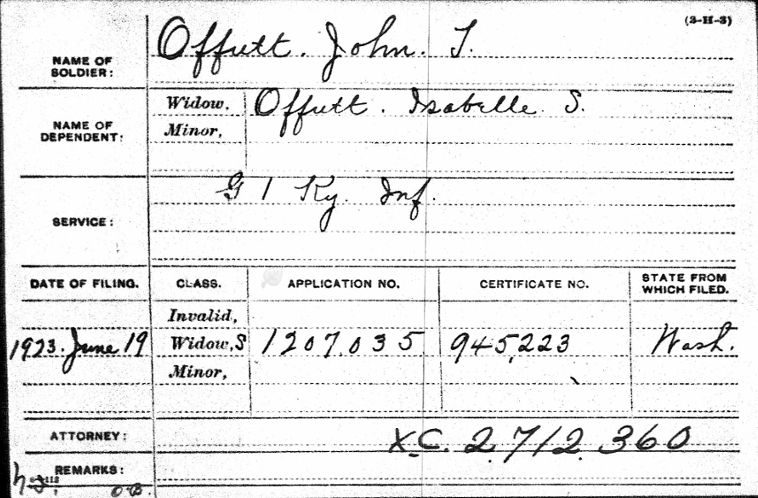 (3-H-3)
NAME OF SOLDIER: Offutt. John. T.
NAME OF DEPENDENT: Widow, Offutt. Isabelle S.
Minor,
SERVICE: G 1 Ky. Inf.
DATE OF FILING. CLASS. APPLICATION NO. CERTIFICATE NO. STATE FROM WHICH FILED.
Invalid,
1923. June 19 Widow, S 1207.035 945,223 Wash.
Minor,
ATTORNEY: XC. 2,712,360
REMARKS: